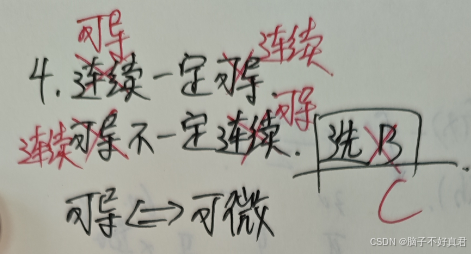 可导 连续
4. 连续一定可导.
连续 可导不一定连续. 可导 选B
C
可导⟺可微
CSDN @脑子不好真君